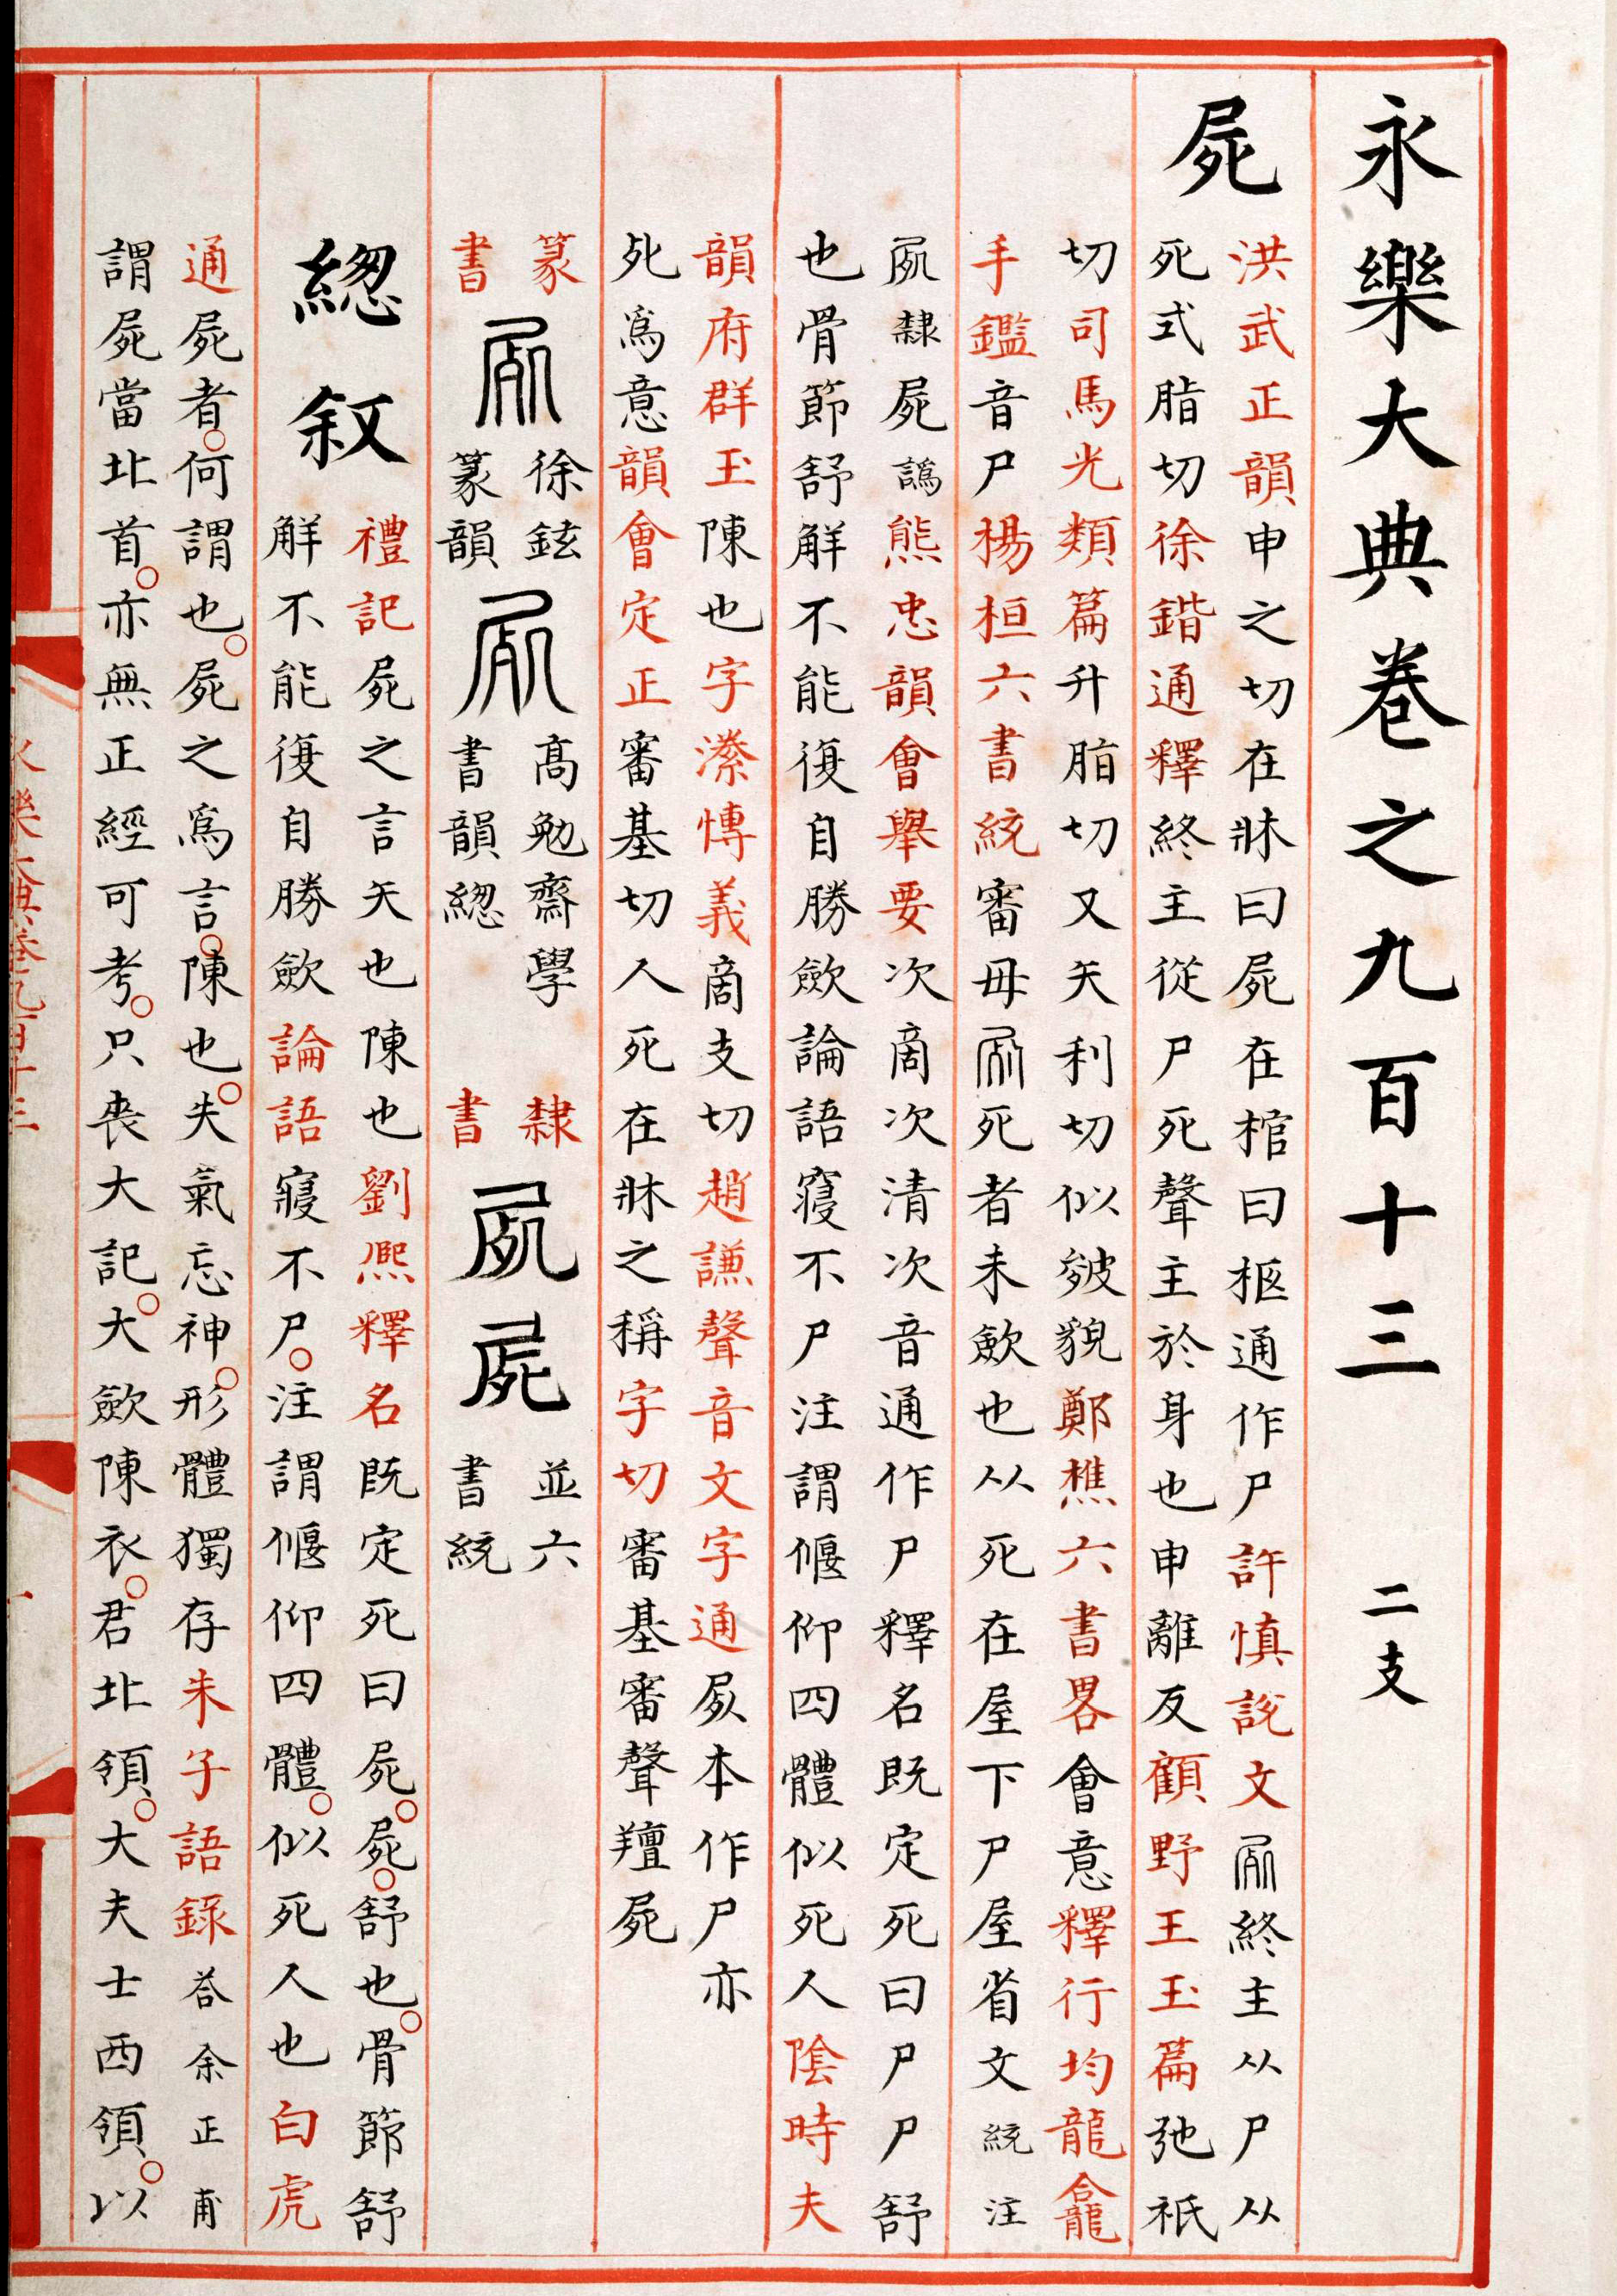 永樂大典卷之九百十三 二支
屍
洪武正韻申之切在牀曰屍在棺曰柩通作尸許慎說文𡰣終主从尸从
死式脂切徐鍇通釋終主從尸死聲主於身也申離反顧野王玉篇弛祇
切司馬光類篇升脂切又矢利切似皴貌鄭樵六書畧會意釋行均龍龕
手鑑音尸楊桓六書統審毋𡰣死者未歛也从死在屋下尸屋省文統注
𡰣隸屍譌熊忠韻會舉要次商次清次音通作尸釋名既定死曰尸尸舒
也骨節舒解不能復自勝歛論語寢不尸注謂偃仰四體似死人陰時夫
韻府群玉陳也字潫博義商支切趙謙聲音文字通屍本作尸亦
死為意韻會定正審基切人死在牀之稱字切審基審聲羶屍
篆書
徐鉉篆韻
高勉齋學書韻緫
隸書
並六書統
緫叙
禮記屍之言矢也陳也劉熈釋名既定死曰屍屍舒也骨節舒
解不能復自勝歛論語寢不尸注謂偃仰四體似死人也白虎
通屍者何謂也屍之為言陳也失氣忘神形體獨存朱子語錄荅余正甫
謂屍當北首亦無正經可考只喪大記大歛陳衣君北領大夫士西領以